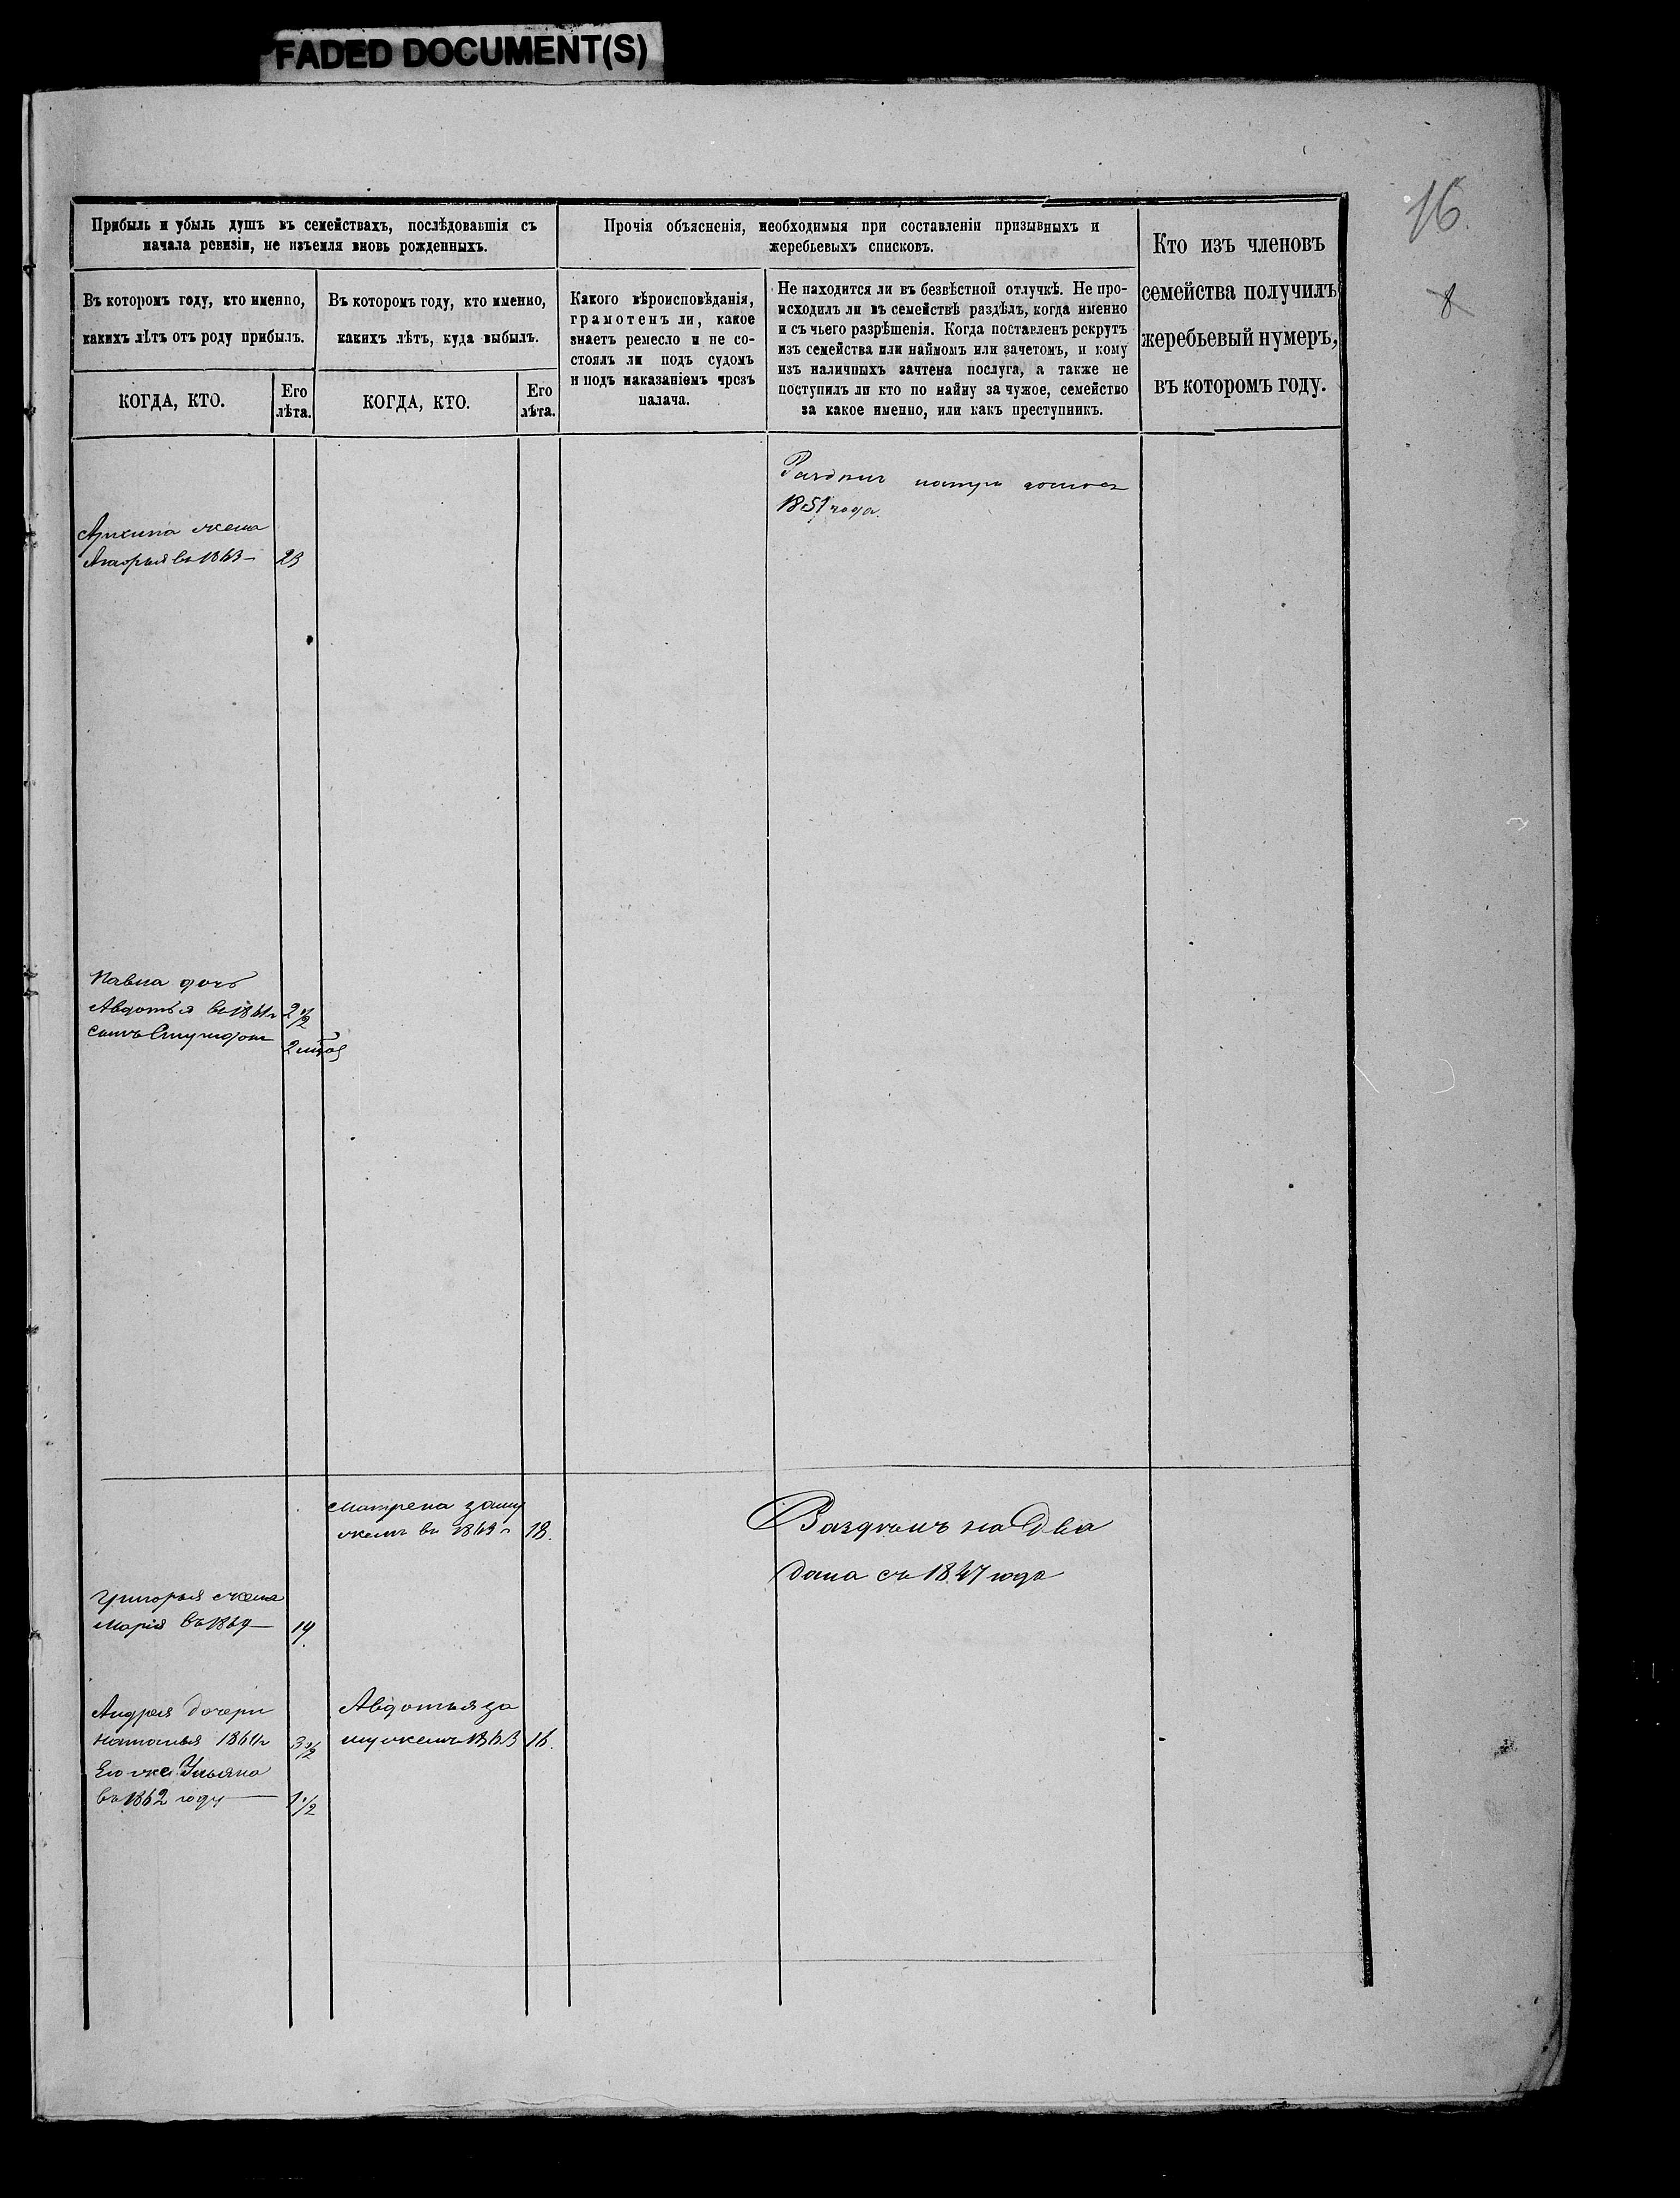 FADED DOCUMENT(S)
16
8
Прибыль и убыль душъ въ семействахъ, послѣдовавшія съ
начала ревизіи, не изъемля вновь рожденныхъ.
Въ которомъ году, кто именно,
какихъ лѣтъ отъ роду прибылъ.
КОГДА, КТО.
Его
лѣта.
Въ которомъ году, кто именно,
какихъ лѣтъ, куда выбылъ.
КОГДА, КТО.
Его
лѣта.
Прочія объясненія, необходимыя при составленіи призывныхъ и
жеребьевыхъ списковъ.
Какого вѣроисповѣданія,
грамотенъ ли, какое
знаетъ ремесло и не со-
стоялъ ли подъ судомъ
и подъ наказаніемъ чрезъ
палача.
Не находится ли въ безвѣстной отлучкѣ. Не про-
исходилъ ли въ семействѣ раздѣлъ, когда именно
и съ чьего разрѣшенія. Когда поставленъ рекрутъ
изъ семейства или наймомъ или зачетомъ, и кому
изъ наличныхъ зачтена послуга, а также не
поступилъ ли кто по найму за чужое, семейство
за какое именно, или какъ преступникъ.
Кто изъ членовъ
семейства получилъ
жеребьевый нумеръ,
въ которомъ году.
1851 года.
Архипа жена
въ 1863 23
Павла дочь
Авдотья въ 1861 г 2 1/2
сынъ
Матрена заму
жемъ въ 1863 г 18.
Раздѣлъ на два
дома съ 1847 года
Григорья жена
Марія въ 18 19.
Андрея дочери
Наталья 1860 г 3 1/2
Его же Ульяна
въ 1862 году 1 1/2
Авдотья за
мужемъ 1863 16.